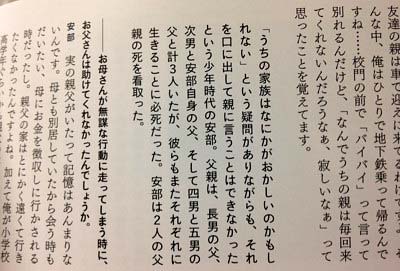 友達の親は車で迎えに来てくれるわけです。そ
んな中、俺はひとりで地下鉄乗って帰るんで
すね……校門の前で「バイバイ」って言って
別れるんだけど、「なんでうちの親は毎回来
てくれないんだろうなぁ、寂しいなぁ」って
思ったことを覚えてます。
「うちの家族はなにかがおかしいのかもし
れない」という疑問がありながらも、それ
を口に出して親に言うことはできなかった
という少年時代の安部。父親は、長男の父、
次男と安部自身の父、そして四男と五男の
父と計3人いたが、彼らもまたそれぞれに
生きることに必死だった。安部は2人の父
親の死を看取った。
――お母さんが無謀な行動に走ってしまう時に、
お父さんは助けてくれなかったんでしょうか。
安部 実の親父がいたって記憶はあんまりな
いんです。母とも別居していたから会う時も
だいたい、母にお金を徴収しに行かされる
時だったし。親父の家はとにかく遠くて行き
たくなかったんですよね。加えて俺が小学校